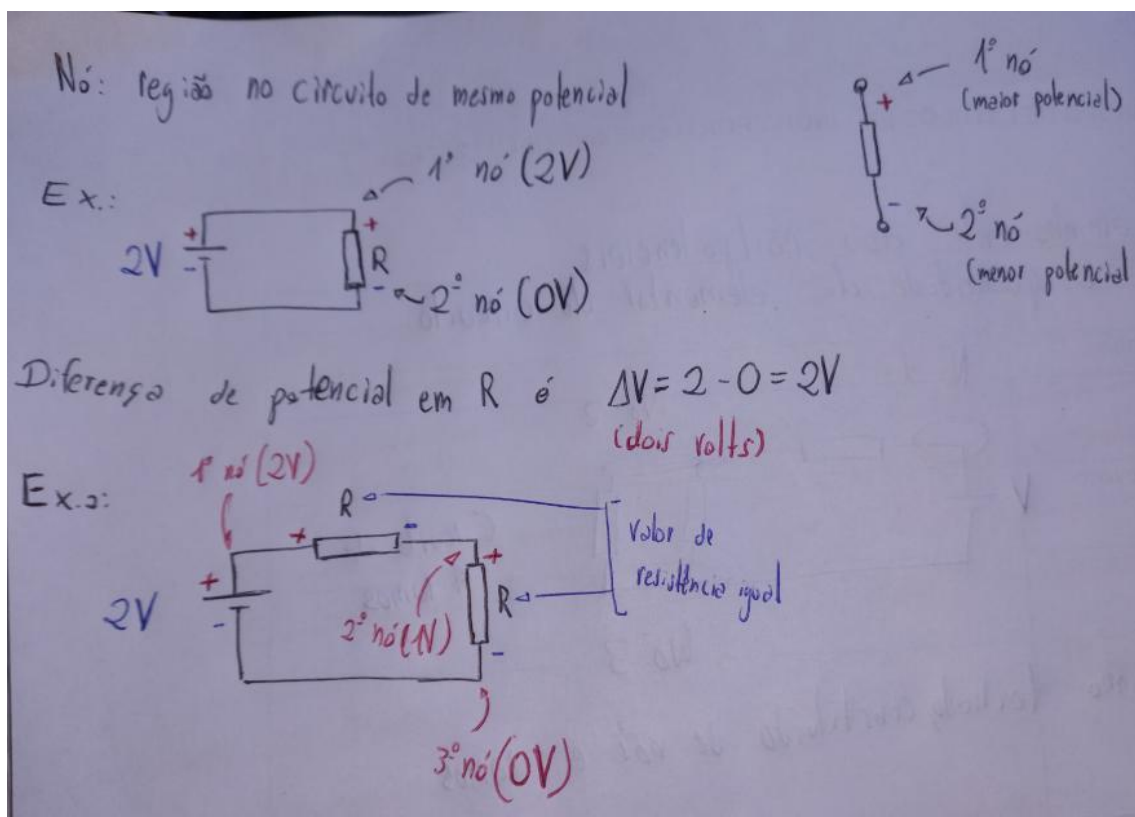 Nó: região no circuito de mesmo potencial
1º nó
(maior potencial)
+
-
2º nó
(menor potencial
Ex.:
1º nó (2V)
2V
+
-
+
R
-
2º nó (0V)
Diferença de potencial em R é ΔV = 2 - 0 = 2V
(dois volts)
Ex.2:
1º nó (2V)
R
+
-
Valor de
resistência igual
2V
+
-
+
R
-
2º nó (1V)
3º nó (0V)